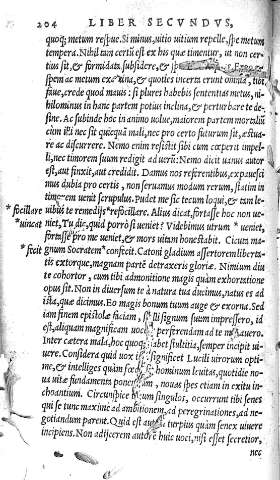 204 LIBER SECVNDVS,
quoq; metum respue. Si minus, uitio uitium repelle, spe metum
tempera. Nihil tam certũ est ex his quæ timentur, ut non cer-
tius sit, & formidata subsidere, &
spem ac metum & quoties incerta erunt omnia, tibi
fiue, crede quod mauis: si plures habebis sententias metus, ni-
hilominus in hanc partem potius inclina, & perturbare te de-
sine. Ac subinde hoc in animo uolue, maiorem partem mortaliũ
cum illi nec sit quicquã mali, nec pro certo futurum sit, æstua-
re ac discurrere. Nemo enim resistit sibi cum cœperit impel-
li, nec timorem suum redigit ad uerũ: Nemo dicit uanus autor
est, aut finxit, aut credidit. Damus nos referentibus, expauesci
mus dubia pro certis, non seruamus modum rerum, statim in
timorem uenit scrupulus. Pudet me sic tecum loqui, & tam le-
*focillare uibus te remedijs *refocillare. Alius dicat, fortasse hoc non ue-
*uincat niet, Tu dic, quid porrò si ueniet? Videbimus utrum *ueniet,
fortasse pro me ueniet, & mors uitam honestabit. Cicuta ma-
*fecit gnum Socratem *confecit. Catoni gladium assertorem liberta-
tis extorque, magnam partē detraxeris gloriæ. Nimium diu
te cohortor, cum tibi admonitione magis quàm exhortatione
opus sit. Non in diuersum te à natura tua ducimus, natus es ad
ista, quæ dicimus. Eo magis bonum tuum auge & exorna. Sed
iam finem epistolæ faciam, si illi signum suum impressero, id
est, aliquam magnificam uocem perferendam ad te
Inter cætera mala, hoc quoq; habet stultitia, semper incipit ui-
uere. Considera quid uox significet Lucili uirorum opti-
me, & intelliges quàm fœda hominum leuitas, quotidie no-
ua uitæ fundamenta ponentium, nouas spes etiam in exitu in-
choantium. Circunspice singulos, occurrunt tibi senes
qui se tunc maximè ad ambitionem, ad peregrinationes, ad ne-
gotiandum parent. Quid est turpius quàm senex uiuere
incipiens. Non adijcerem autorē huic uoci, nisi esset secretior,
nec